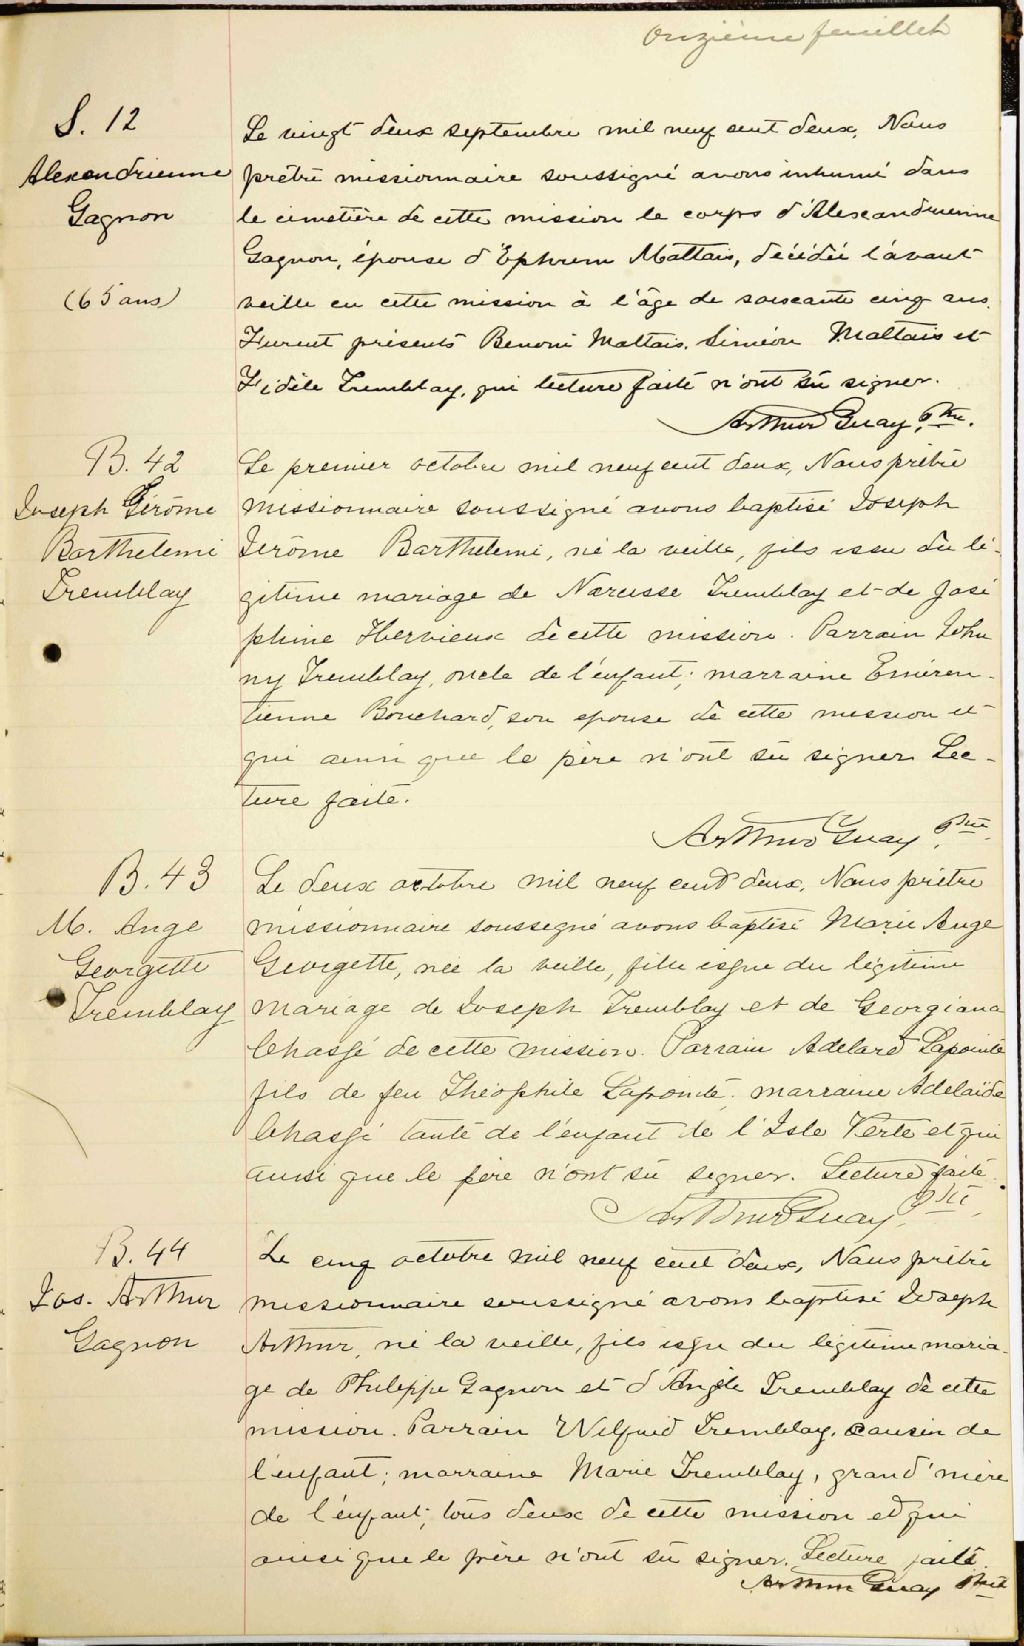 Onzième feuillet
S. 12
Alexandrienne
Gagnon
(65 ans)
Le vingt deux septembre mil neuf cent deux, Nous
prêtre missionnaire soussigné avons inhumé dans
le cimetière de cette mission le corps d'Alexandrienne
Gagnon, épouse d'Ephrem Maltais, décédée l'avant
veille en cette mission à l'âge de soixante cinq ans.
Furent présents Benoni Maltais, Siméon Maltais et
Fidèle Tremblay, qui lecture faite n'ont su signer.
Arthur Guay, Ptre.
B. 42
Joseph Gérôme
Barthelemi
Tremblay
Le premier octobre mil neuf cent deux, Nous prêtre
missionnaire soussigné avons baptisé Joseph
Jérôme Barthelemi, né la veille, fils issu du lé-
gitime mariage de Narcisse Tremblay et de José
phine Hervieux de cette mission. Parrain John
ny Tremblay, oncle de l'enfant; marraine Eméren-
tienne Bouchard, son epouse de cette mission et
qui ainsi que le père n'ont su signer. Lec-
ture faite.
Arthur Guay, Ptre.
B. 43
M. Ange
Georgette
Tremblay
Le deux octobre mil neuf cent deux, Nous prêtre
missionnaire soussigné avons baptisé Marie Ange
Georgette, née la veille, fille issue du légitime
mariage de Joseph Tremblay et de Georgiana
Chassé de cette mission. Parrain Adelard Lapointe
fils de feu Théophile Lapointe; marraine Adelaïde
Chassé tante de l'enfant de l'Isle Verte et qui
ainsi que le père n'ont su signer. Lecture faite.
Arthur Guay, Ptre.
B. 44
Jos. Arthur
Gagnon
Le cinq octobre mil neuf cent deux, Nous prêtre
missionnaire soussigné avons baptisé Joseph
Arthur, né la veille, fils issu du légitime maria-
ge de Philippe Gagnon et d'Angèle Tremblay de cette
mission. Parrain Wilfrid Tremblay, cousin de
l'enfant; marraine Marie Tremblay, grand'mère
de l'enfant; tous deux de cette mission et qui
ainsi que le père n'ont su signer. Lecture faite.
Arthur Guay Ptre